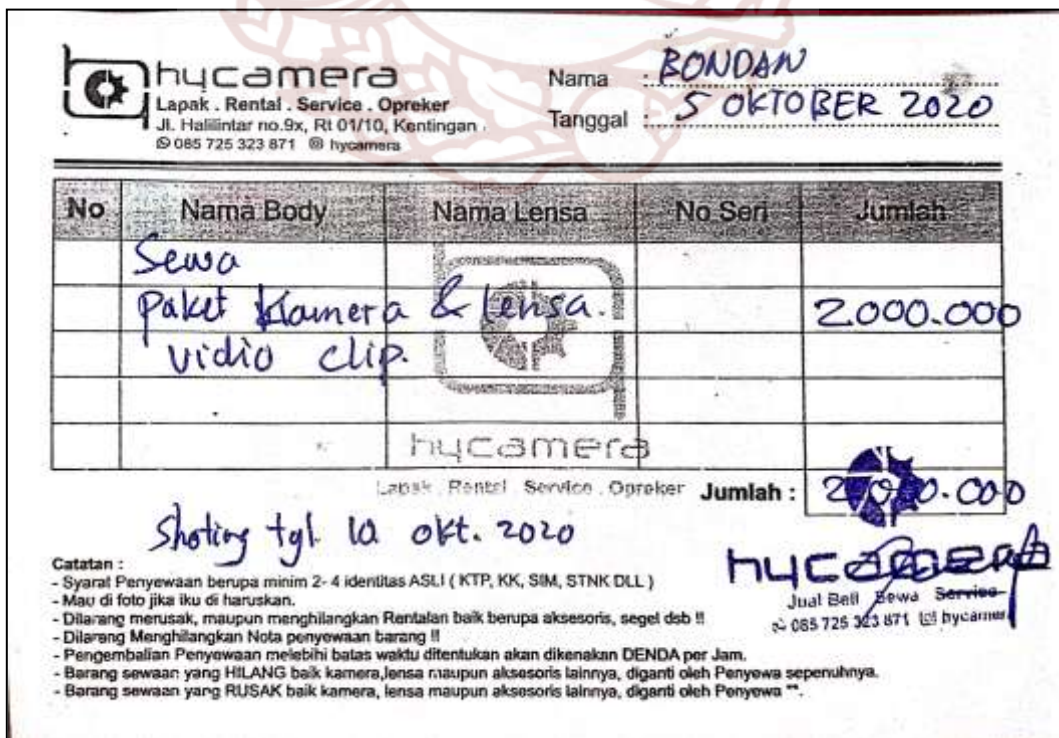 hycamera
Lapak . Rental . Service . Opreker
Jl. Halilintar no.9x, Rt 01/10, Kentingan .
085 725 323 871 hycamera
Nama : BONDAN
Tanggal : 5 OKTOBER 2020
No Nama Body Nama Lensa No Seri Jumlah
Sewa
paket Kamera & Lensa. 2.000.000
vidio clip.
hycamera
Lapak . Rental . Service . Opreker
Jumlah : 2.000.000
Shoting tgl. 10 okt. 2020
Catatan :
- Syarat Penyewaan berupa minim 2- 4 identitas ASLI ( KTP, KK, SIM, STNK DLL )
- Mau di foto jika iku di haruskan.
- Dilarang merusak, maupun menghilangkan Rentalan baik berupa aksesoris, segel dsb !!
- Dilarang Menghilangkan Nota penyewaan barang !!
- Pengembalian Penyewaan melebihi batas waktu ditentukan akan dikenakan DENDA per Jam.
- Barang sewaan yang HILANG baik kamera,lensa maupun aksesoris lainnya, diganti oleh Penyewa sepenuhnya.
- Barang sewaan yang RUSAK baik kamera, lensa maupun aksesoris lainnya, diganti oleh Penyewa **.
hycamera
Jual Beli Sewa Service
085 725 323 871 hycamer